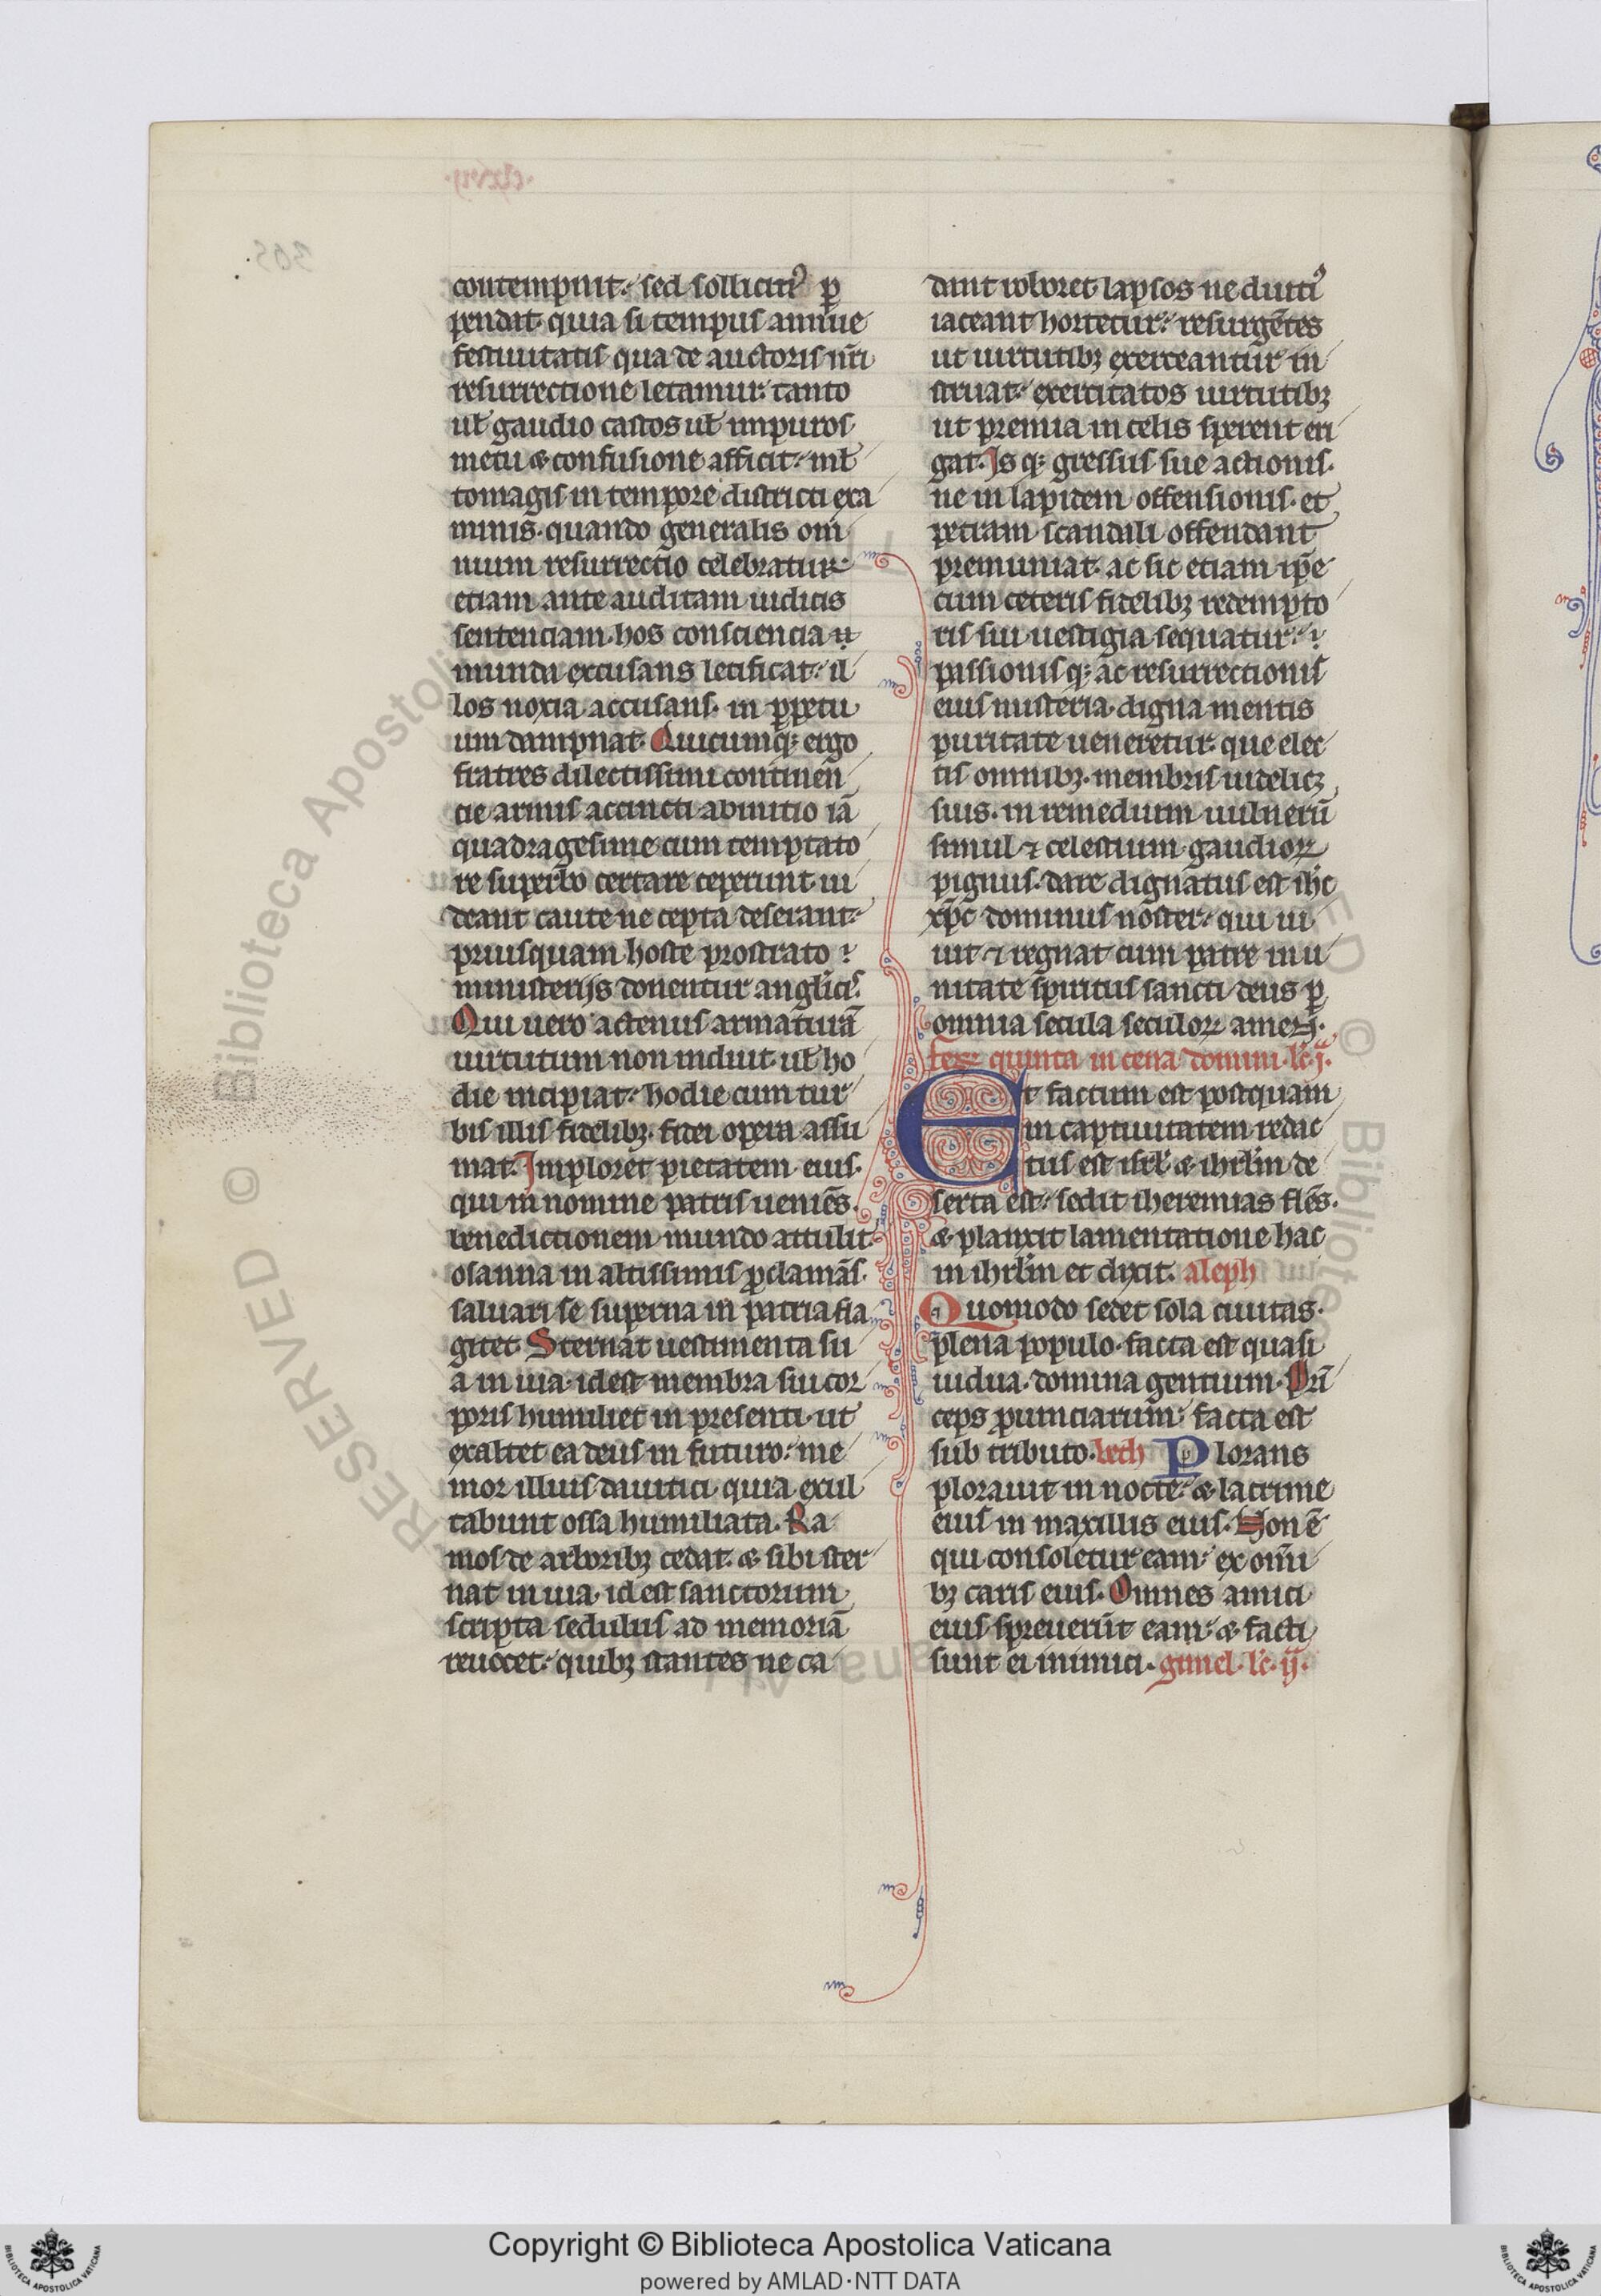 contempnit. sed sollicitꝰ ꝑ
pendat. quia si tempus annue
festiuitatis qua de auctoris nr̄i
resurrectione letamur. tanto
ul̄ gaudio castos ul̄ impuros
metu & confusione afficit. ml̄
tomagis in tempore districti exa
minis. quando generalis om̄
nium resurrectio celebratur.
etiam ante auditam iudicis
sentenciam. hos consciencia
munda excusans letificat. il
los noxia accusans. in ꝑpetu
um dampnat. Quicumq; ergo
fratres dilectissimi continen
cie armis accincti abinitio iā
quadragesime cum temptato
re superbo certare ceperunt. ui
deant caute ne cepta deserant.
priusquam hoste prostrato
ministerijs donentur angl̄icis.
Qui uero actenus armaturā
uirtutum non induit. ul̄ ho
die incipiat. hodie cum tur
bis illis fidelibꝫ. fidei opera assu
mat. Imploret pietatem eius.
qui in nomine patris ueniēs.
benedictionem mundo attulit.
osanna in altissimis ꝓclamās.
saluari se superna in patria fla
gitet. Sternat uestimenta su
a in uia. idest membra sui cor
poris humiliet in presenti. ut
exaltet ea deus in futuro. me
mor illius dauitici. quia exul
tabunt ossa humiliata. Ra
mos de arboribꝫ cedat. & sibi ster
nat in uia. id est sanctorum
scripta sedulus ad memoriā
reuocet. quibꝫ stantes ne ca
dant roboret. lapsos ne diutiꝰ
iaceant hortetur. resurgētes
ut uirtutibꝫ exerceantur in
struat. exercitatos uirtutibꝫ
ut premia in celis sperent eri
gat. Is q; gressus sue actionis.
ne in lapidem offensionis. et
petram scandali offendant
premuniat. ac sic etiam ip̄e
cum ceteris fidelibꝫ redempto
ris sui uestigia sequatur.
passionisq; ac resurrectionis
eius misteria. digna mentis
puritate ueneretur. que elec
tis omnibꝫ. membris uidelicꝫ
suis. in remedium uulnerū
simul ⁊ celestium gaudioꝝ
pignus. dare dignatus est ih̄c
xp̄c dominus noster. qui ui
uit ⁊ regnat cum patre in u
nitate spiritus sancti deus ꝑ
omnia secula seculoꝝ amen.
fer. quinta in cena domini. lc̄. j.
Et factum est postquam
in captiuitatem redac
tus est isrl̄ & ihrl̄m de
serta est. sedit iheremias flēs.
& planxit lamentatione hac
in ihrl̄m et dixit. aleph
Quomodo sedet sola ciuitas.
plena populo. facta est quasi
uidua. domina gentium. Prī
ceps ꝓuinciarum. facta est
sub tributo. beth Plorans
plorauit in nocte. & lacrime
eius in maxillis eius. Non ē
qui consoletur eam. ex om̄i
bꝫ caris eius. Omnes amici
eius spreuerūt eam. & facti
sunt ei inimici. gimel. lc̄. ij.
RESERVED © Biblioteca Apostoli
ED © Bibliotec
Copyright © Biblioteca Apostolica Vaticana
powered by AMLAD·NTT DATA
BIBLIOTECA APOSTOLICA VATICANA
BIBLIOTECA APOSTOLICA VATICANA